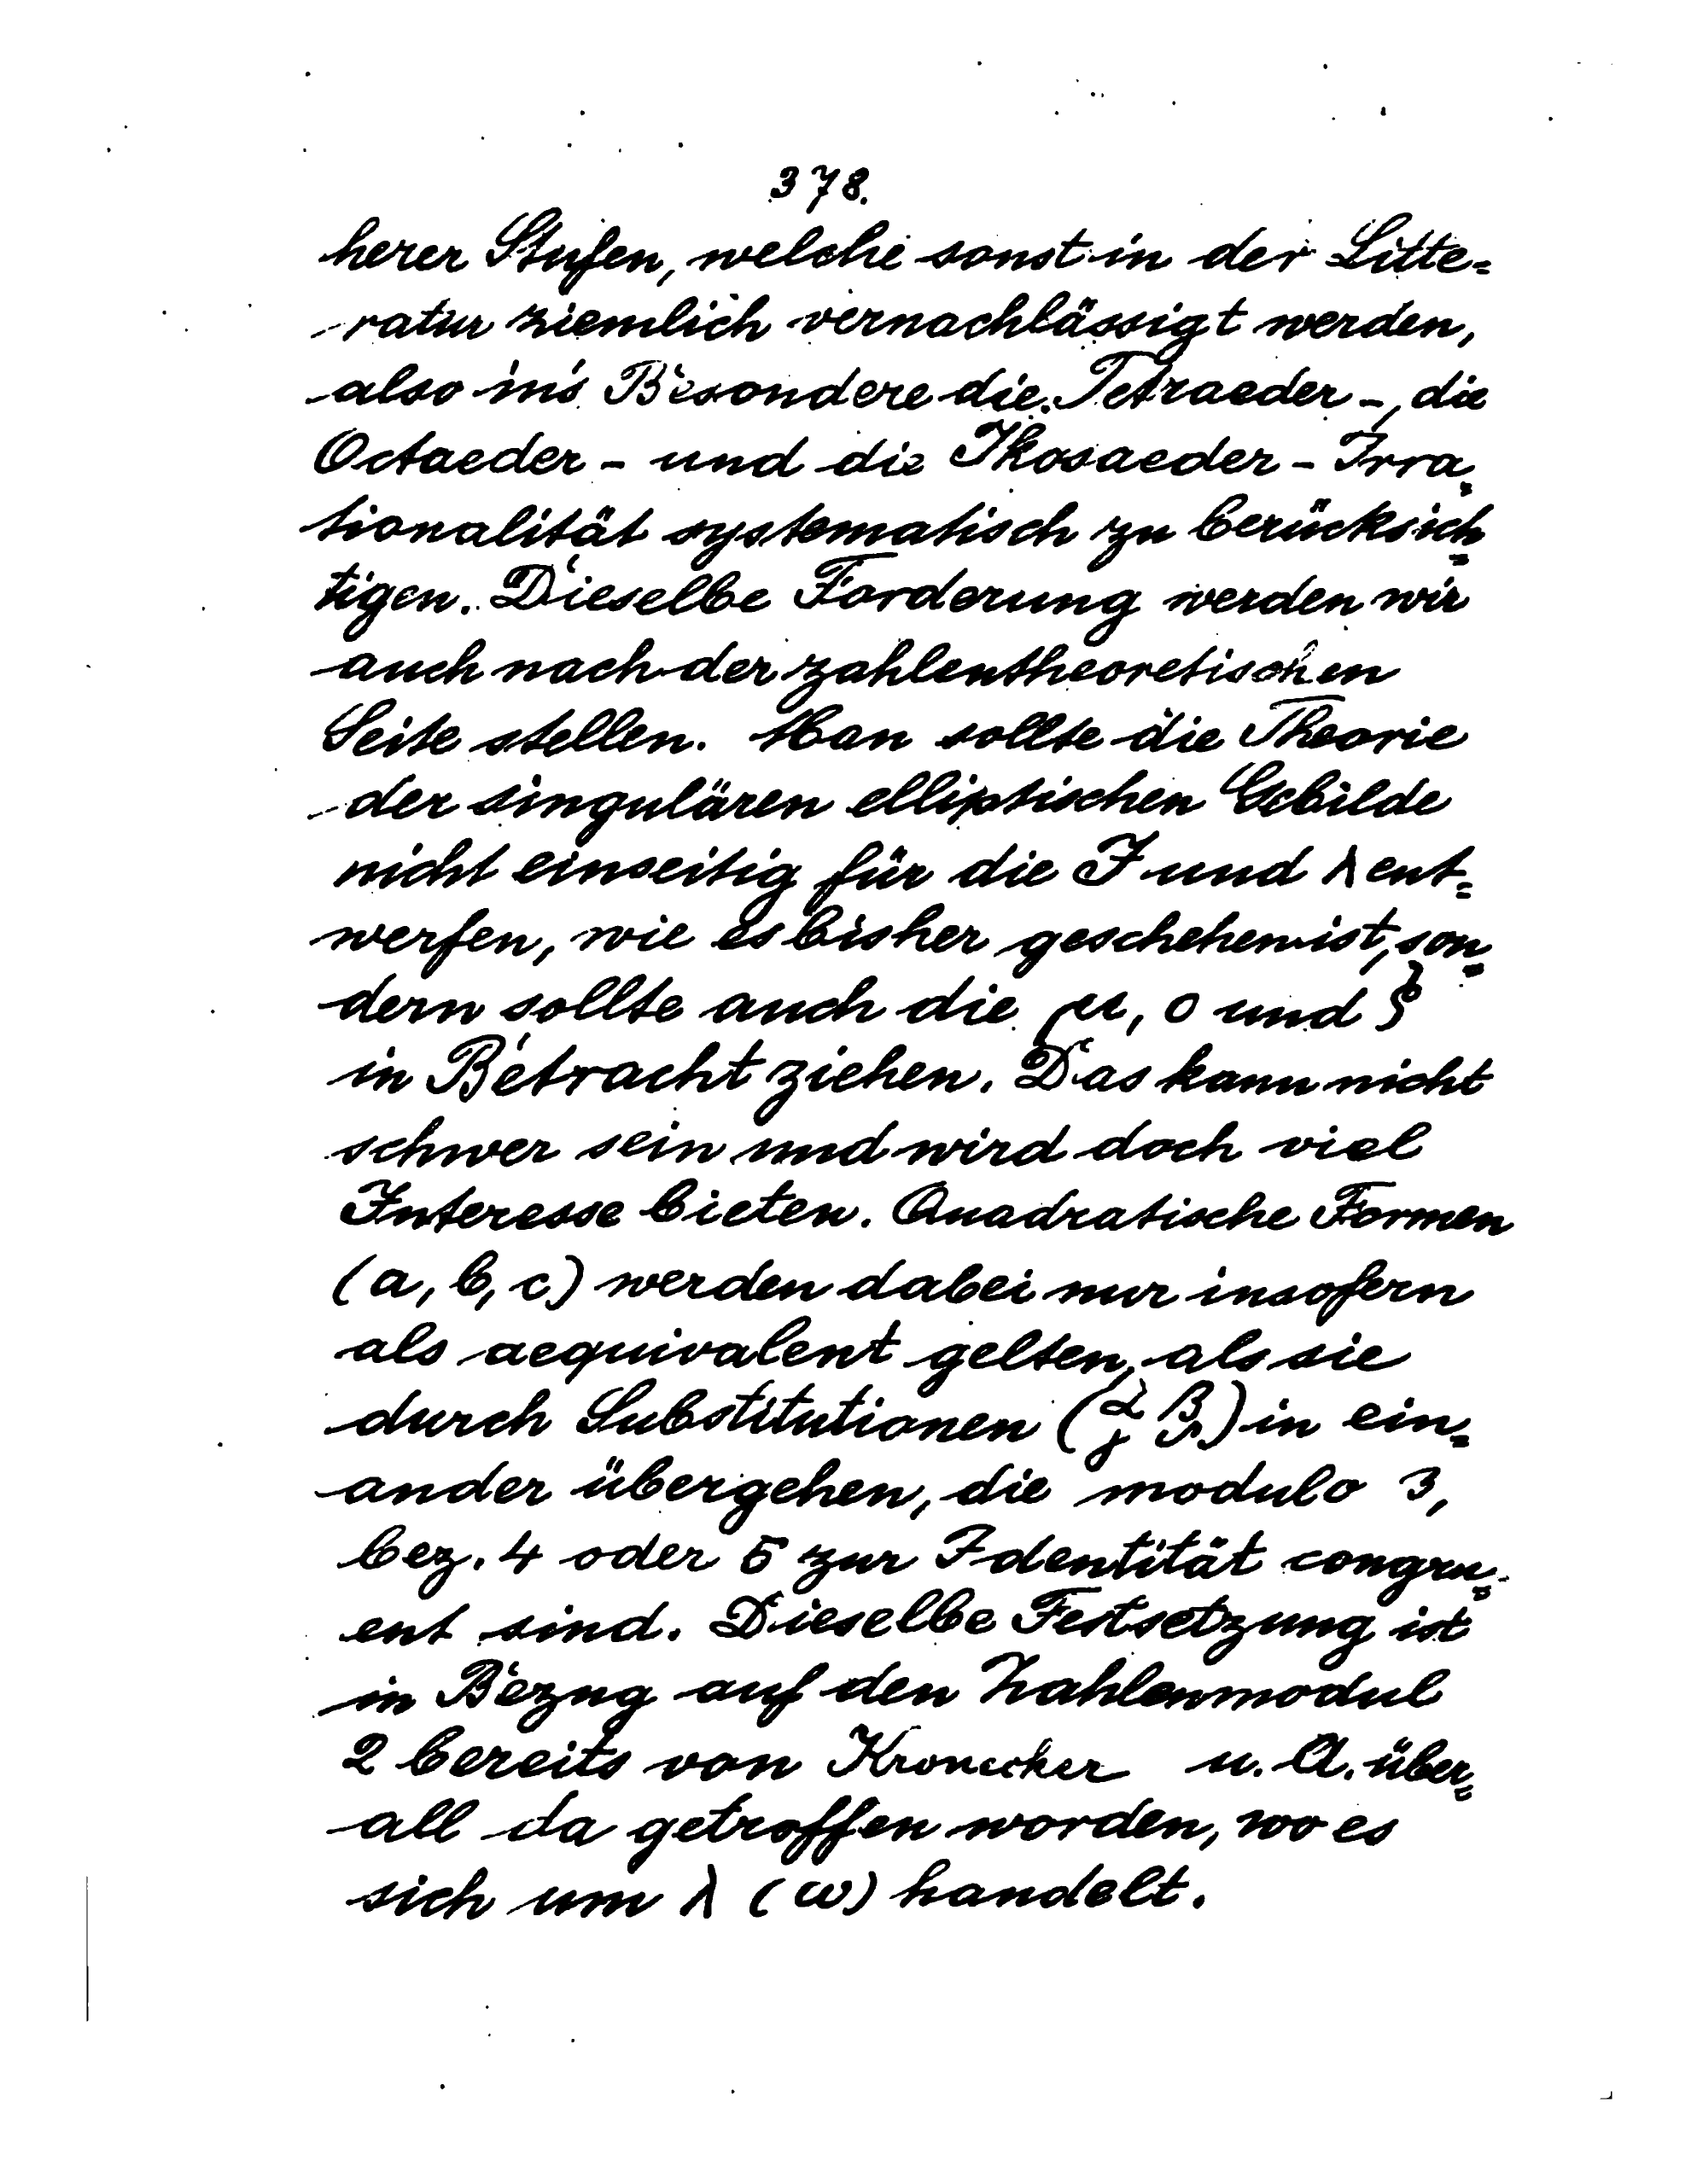 378.
herer Stufen, welche sonst in der Litte=
ratur ziemlich vernachlässigt werden,
also in's Besondere die Tetraeder-, die
Octaeder- und die Ikosaeder-Irra=
tionalität systematisch zu berücksich=
tigen. Dieselbe Forderung werden wir
auch nach der zahlentheoretischen
Seite stellen. Man sollte die Theorie
der singulären elliptischen Gebilde
nicht einseitig für die J und λ ent=
werfen, wie es bisher geschehen ist, son=
dern sollte auch die μ, o und ξ
in Betracht ziehen. Das kann nicht
schwer sein und wird doch viel
Interesse bieten. Quadratische Formen
(a, b, c) werden dabei nur insofern
als aequivalent gelten, als sie
durch Substitutionen (α β γ δ) in ein=
ander übergehen, die modulo 3,
bez. 4 oder 5 zur Identität congru=
ent sind. Dieselbe Festsetzung ist
in Bezug auf den Zahlenmodul
2 bereits von Kronecker u. A. über=
all da getroffen worden, wo es
sich um λ (ω) handelt.